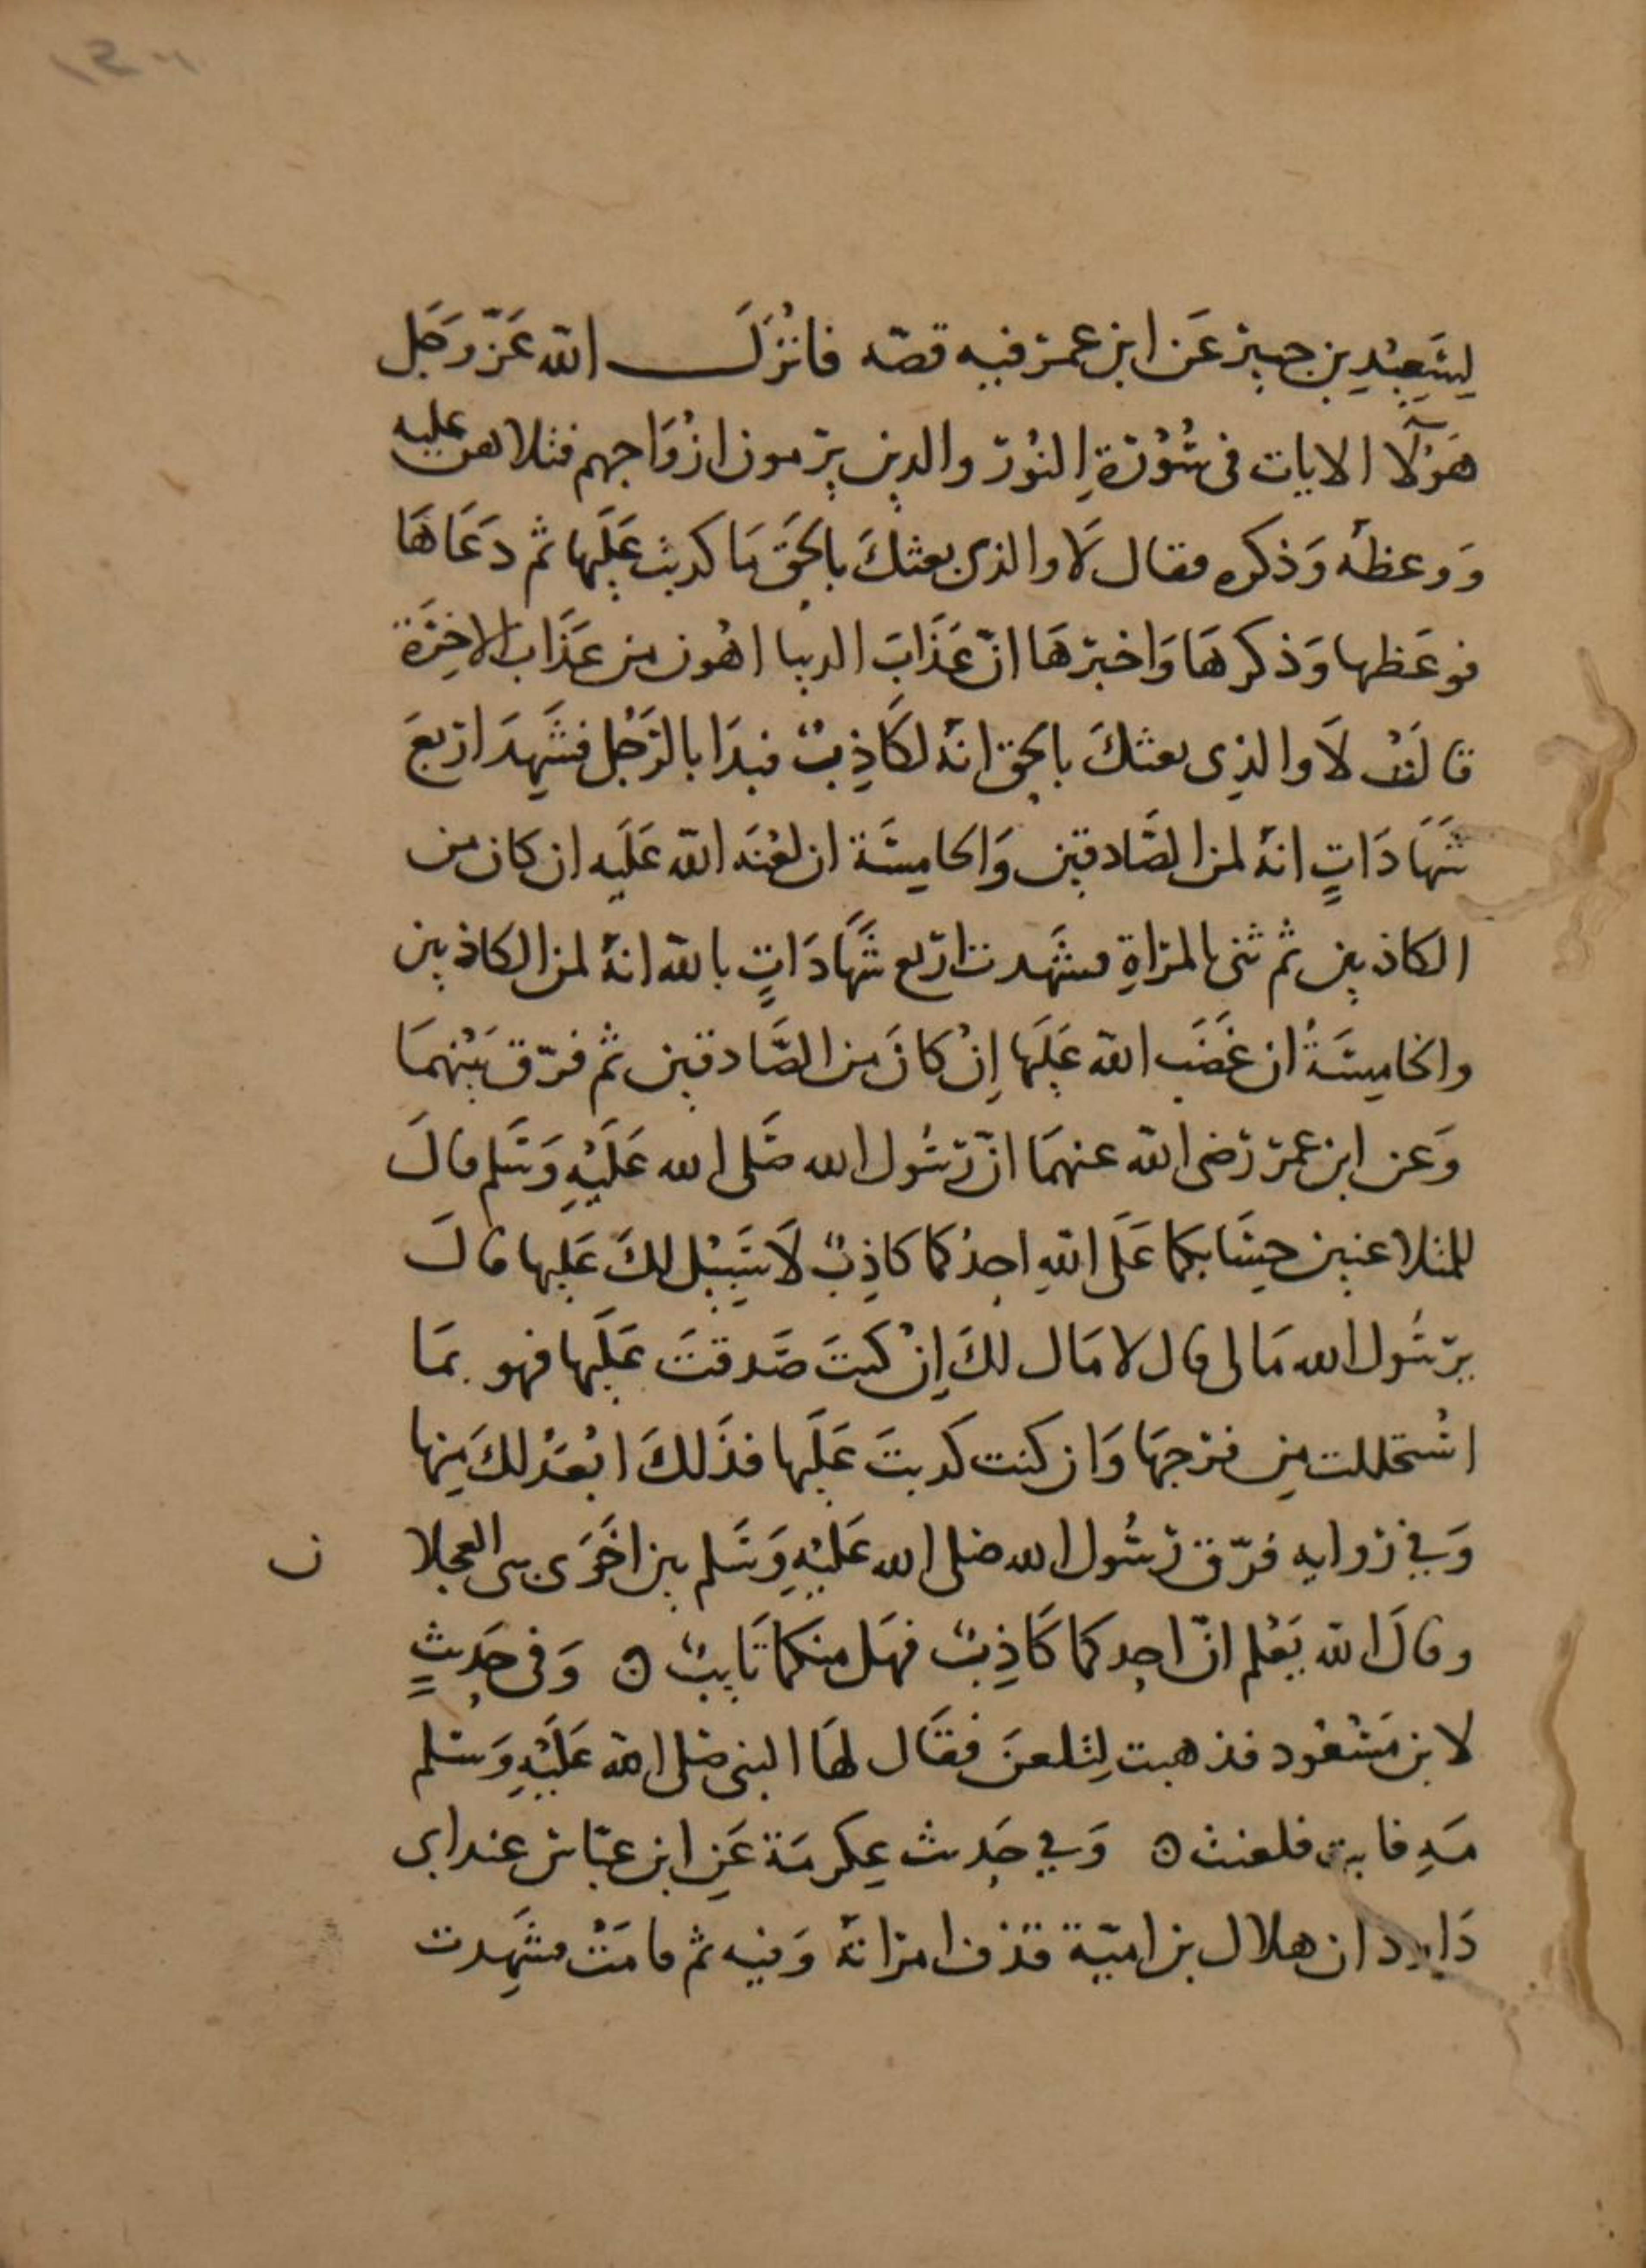 لِسَعِيْدِ بن جبير عَن ابن عمر فيه قصّه فانْزَلَ الله عَزّ وَجَل
هَؤلآ الايات فى سُوْرَةِ النُوْر والدين يرمون ازْوَاجهم فتلاهن عليه
وَوعظهُ وَذكره فقال لَا والذى بعثكَ بالحَق مَا كدبت عَلَيها ثم دَعَاهَا
فوعَظها وَذكرهَا وَاخبرهَا انّ عَذَابَ الدنيا اهْون من عَذَاب الاخِرَة
قالَتْ لَا والذِى بعثكَ بالحق انهُ لكَاذِبٌ فبدَا بالرَجُل فشَهِدَ اربعَ
شَهَادَاتٍ انهُ لمن الصَّادقين وَالخامِسَة ان لعْنَه الله عَلَيه ان كان من
الكاذبين ثم ثنى بالمرَاةِ فشَهدت اربع شَهَادَاتٍ بالله انهُ لمن الكاذبين
والخامِسَةُ ان غَضَب الله عَلَيها إنْ كانَ من الصَّادقين ثم فرّق بَيْنهمَا
وَعن ابن عمر رَضى الله عنهمَا انّ رسُول الله صَلى الله عَلَيْهِ وَسَلم قالَ
للمتلاعنين حِسَابكما عَلَى اللهِ احدُكما كاذِبٌ لَا سَبِيْل لكَ عَليها قالَ
يرسُول الله مَالى قال لا مَال لكَ إنْ كنتَ صَدقتَ عَلَيها فهو بمَا
اسْتحللت مِن فرجهَا وَان كنت كدبتَ عَلَيها فذَلكَ ابْعَدُ لكَ مِنها
وَفى روايه فرّق رَسُول الله صلى الله عَلَيْهِ وَسَلم بين اخَوَى بنى العجلا ن
وقالَ الله يَعْلم انّ احدكما كَاذِبٌ فهَل منكما تَايبٌ ه وَفى حَدِيثٍ
لابن مَسْعُود فذهبت لِتلعنَ فقَال لهَا النبى صَلى الله عَلَيْهِ وَسَلم
مَهِ فابت فلعنت ه وَفى حَدِيث عِكرمَة عَنِ ابن عبّاس عند ابى
دَاود ان هلال بن اميّة قذف امراتهُ وَفيه ثم قامَتْ فشَهِدت